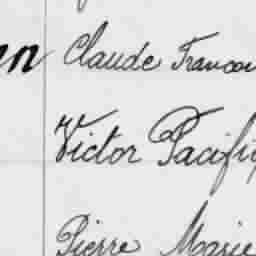 nn Claude Francou
Victor Pacifi
Pierre Marie